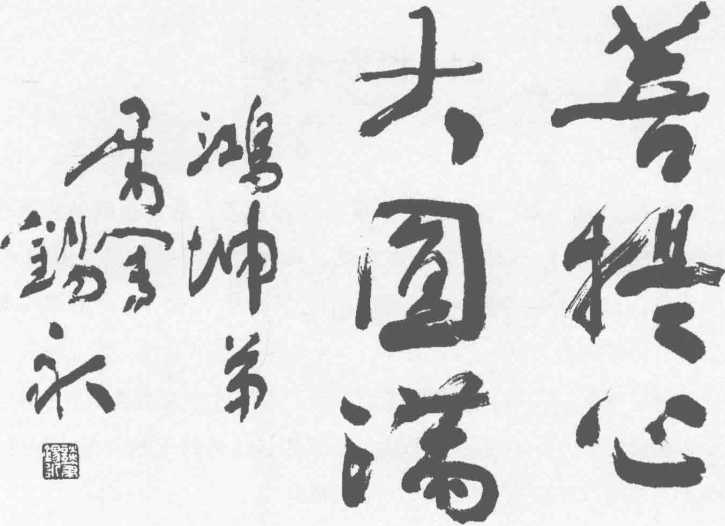 菩提心
大圓滿
鴻坤弟
屬書
錫永